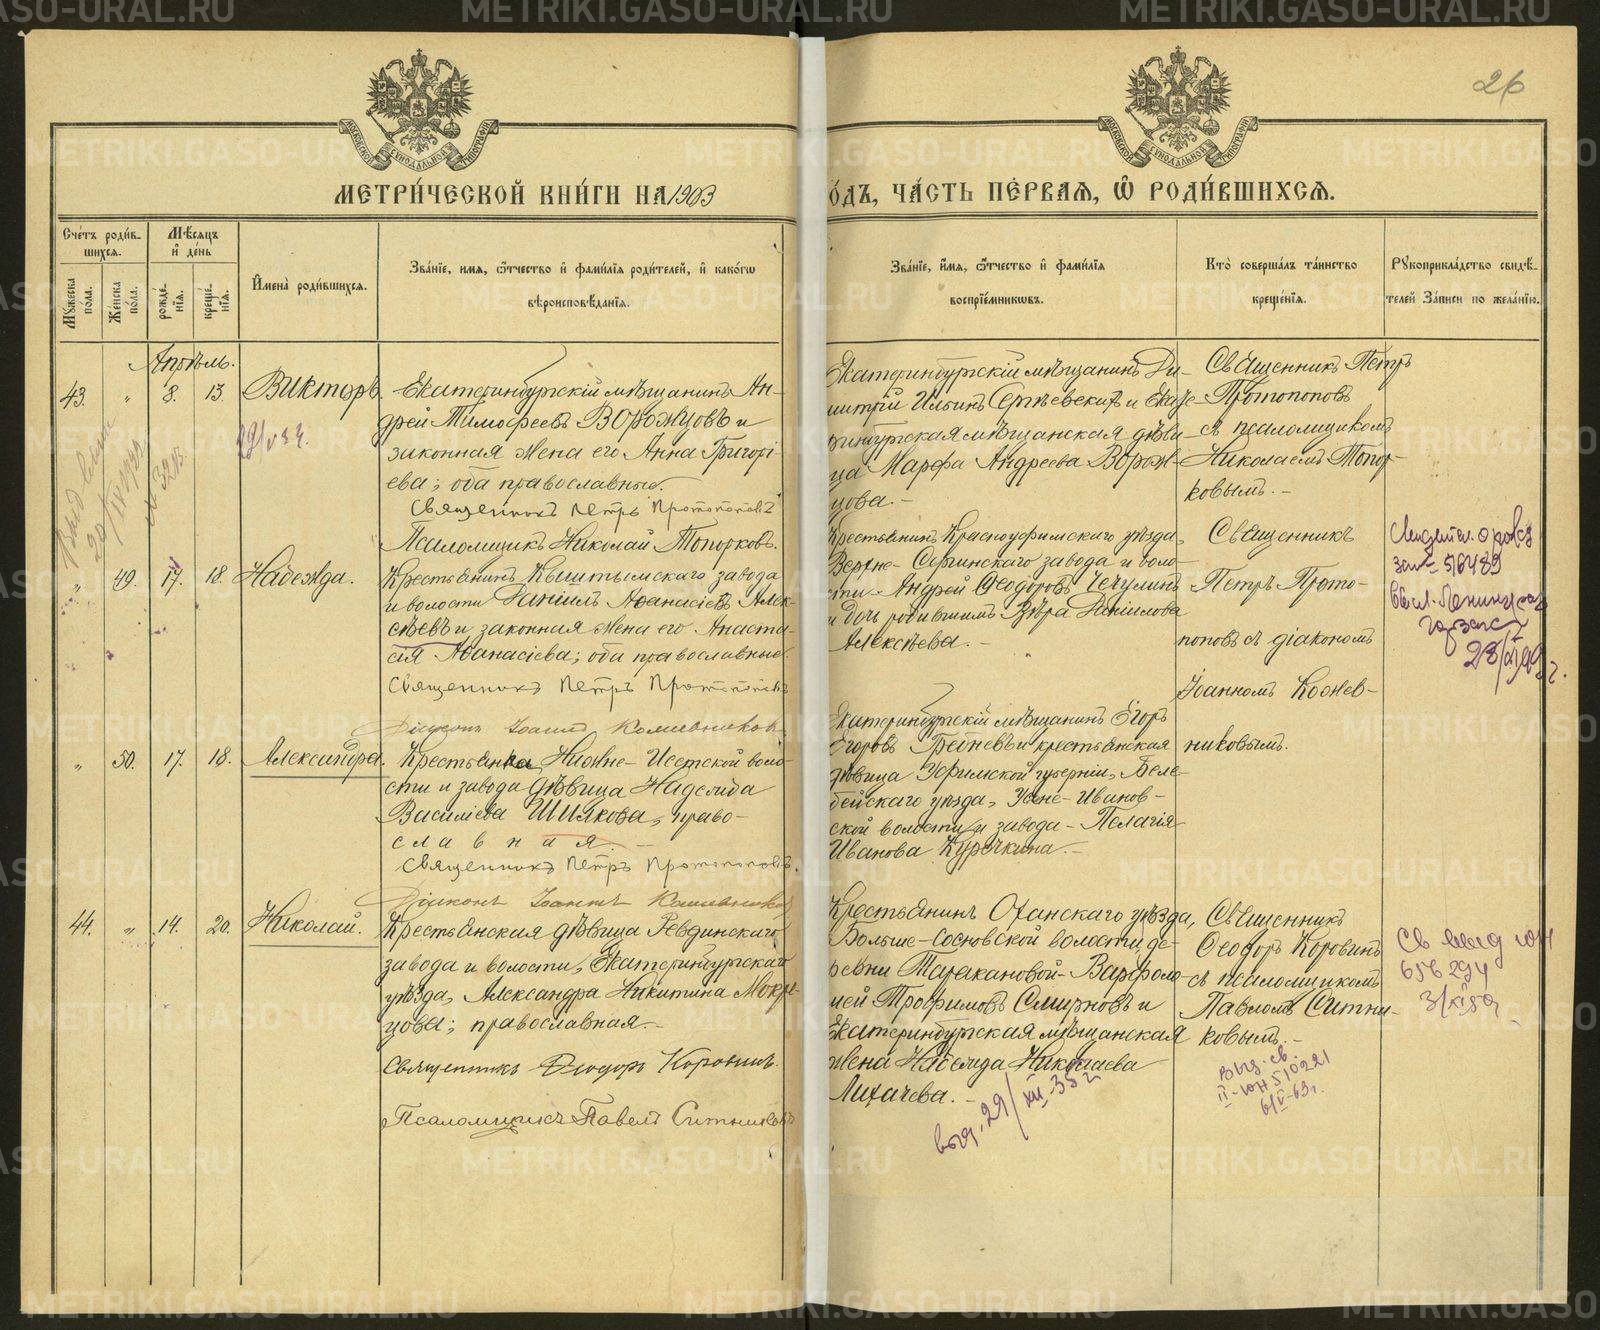 26
МЕТРИ́ЧЕСКОЙ КНИ́ГИ НА 1903
О́ДЪ, ЧА́СТЬ ПЕ́РВАЯ, Ѡ РОДИ́ВШИХСЯ.
Сче́тъ роди́в-
шихся.
Му́жеска пола.
Же́нска по́ла.
Мѣ́сяцъ и де́нь
рожде́-
нія.
креще́-
нія.
Имена̀ роди́вшихся.
Зва́ніе, имя, ѻ́тчество и фами́лія роди́телей, и како́гѡ
вѣроисповѣ́данія.
Зва́ніе, и́мя, ѻ́тчество и фами́лія
воспріе́мниковъ.
Кто̀ соверша́лъ та́инство
креще́нія.
Рукоприкла́дство свидѣ́-
телей За́писи по жела́нію.
Апрѣль.
43. „ 8. 13. Викторъ.
Екатеринбургскій мѣщанинъ Ан-
дрей Тимофеевъ Ворожцовъ и
законная жена его Анна Григорі-
ева; оба православные.
Священникъ Петръ Протопоповъ
Псаломщикъ Николай Топорковъ.
Екатеринбургскій мѣщанинъ Ди-
митрій Ильинъ Сергѣевскихъ и Екате-
ринбургская мѣщанская дѣви-
ца Марфа Андреева Ворож-
цова. –
Священникъ Петръ
Протопоповъ
съ псаломщикомъ
Николаемъ Топор-
ковымъ. –
„ 49. 17. 18. Надежда.
Крестьянинъ Кыштымскаго завода
и волости Даніилъ Аѳанасіевъ Алек-
сѣевъ и законная жена его Анаста-
сія Аѳанасіева; оба православные.
Священникъ Петръ Протопоповъ
Діаконъ Іоаннъ Кожевниковъ
Крестьянинъ Красноуфимскаго уѣзда,
Верхне-Сергинскаго завода и воло-
сти – Андрей Ѳеодоровъ Чечулинъ
и дочь родившимъ Вѣра Даніилова
Алексѣева. –
Священникъ
Петръ Прото-
поповъ съ діакономъ
Іоанномъ Кожев-
никовымъ.
56489
„ 50. 17. 18. Александра.
Крестьянка Нижне-Исетской воло-
сти и завода дѣвица Надежда
Василіева Шишкова, право-
славная. –
Священникъ Петръ Протопоповъ.
Діаконъ Іоаннъ Кожевниковъ
Екатеринбургскій мѣщанинъ Егоръ
Егоровъ Гребневъ и крестьянская
дѣвица Уфимской губерніи, Беле-
бейскаго уѣзда, Усене-Иванов-
ской волости и завода – Пелагія
Иванова Курочкина. –
44. „ 14. 20. Николай.
Крестьянская дѣвица Ревдинскаго
завода и волости, Екатеринбургскаго
уѣзда, Александра Никитина Мокри-
цова; православная. –
Священникъ Ѳеодоръ Коровинъ.
Псаломщикъ Павелъ Ситниковъ
Крестьянинъ Оханскаго уѣзда,
Больше-Сосновской волости де-
ревни Таракановой – Варѳоло-
мей Трофимовъ Смирновъ и
Екатеринбургская мѣщанская
жена Надежда Николаева
Лихачева. –
Священникъ
Ѳеодоръ Коровинъ
съ псаломщикомъ
Павломъ Ситни-
ковымъ. –
Св выд юН
656294
выд. 29/XII-35 г
Выд. св.
II-юН 510221
6/V-63 г.